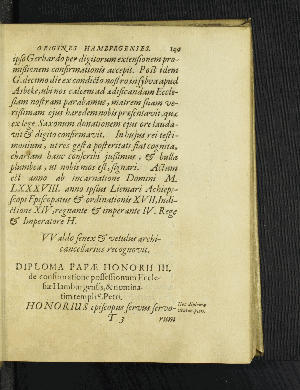 ORIGINES HAMBURGENSES. 149
ipso Gerhardo per digitorum extensionem pro-
missionem confirmationis accepit. Post idem
G. decimo die ex condicto nostro in sylva apud
Asbeke, ubi nos calcem ad ædificandum Eccle-
siam nostram parabamus, matrem suam ve-
rissimam ejus hæredem nobis præsentavit, quæ
ex lege Saxonum donationem ejus ore lauda-
vit & digito confirmavit. In hujus rei testi-
monium, ut res gesta posteritati fiat cognita,
chartam hanc conscribi jussimus, & bulla
plumbea, ut nobis mos est, signari. Actum
est anno ab incarnatione Domini M.
LXXXVIII. anno ipsius Liemari Achiepi-
scopi Episcopatus & ordinationis XVII, Indi-
ctione XIV, regnante & imperante IV. Rege
& Imperatore H.
VValdo senex & vetulus archi-
cancellarius recognovit.
DIPLOMA PAPÆ HONORII III,
de confirmatione possessionum Eccle-
siæ Hamburgensis, & nomina-
tim templi S. Petri.
HONORIUS episcopus servus servo-
T 3 rum